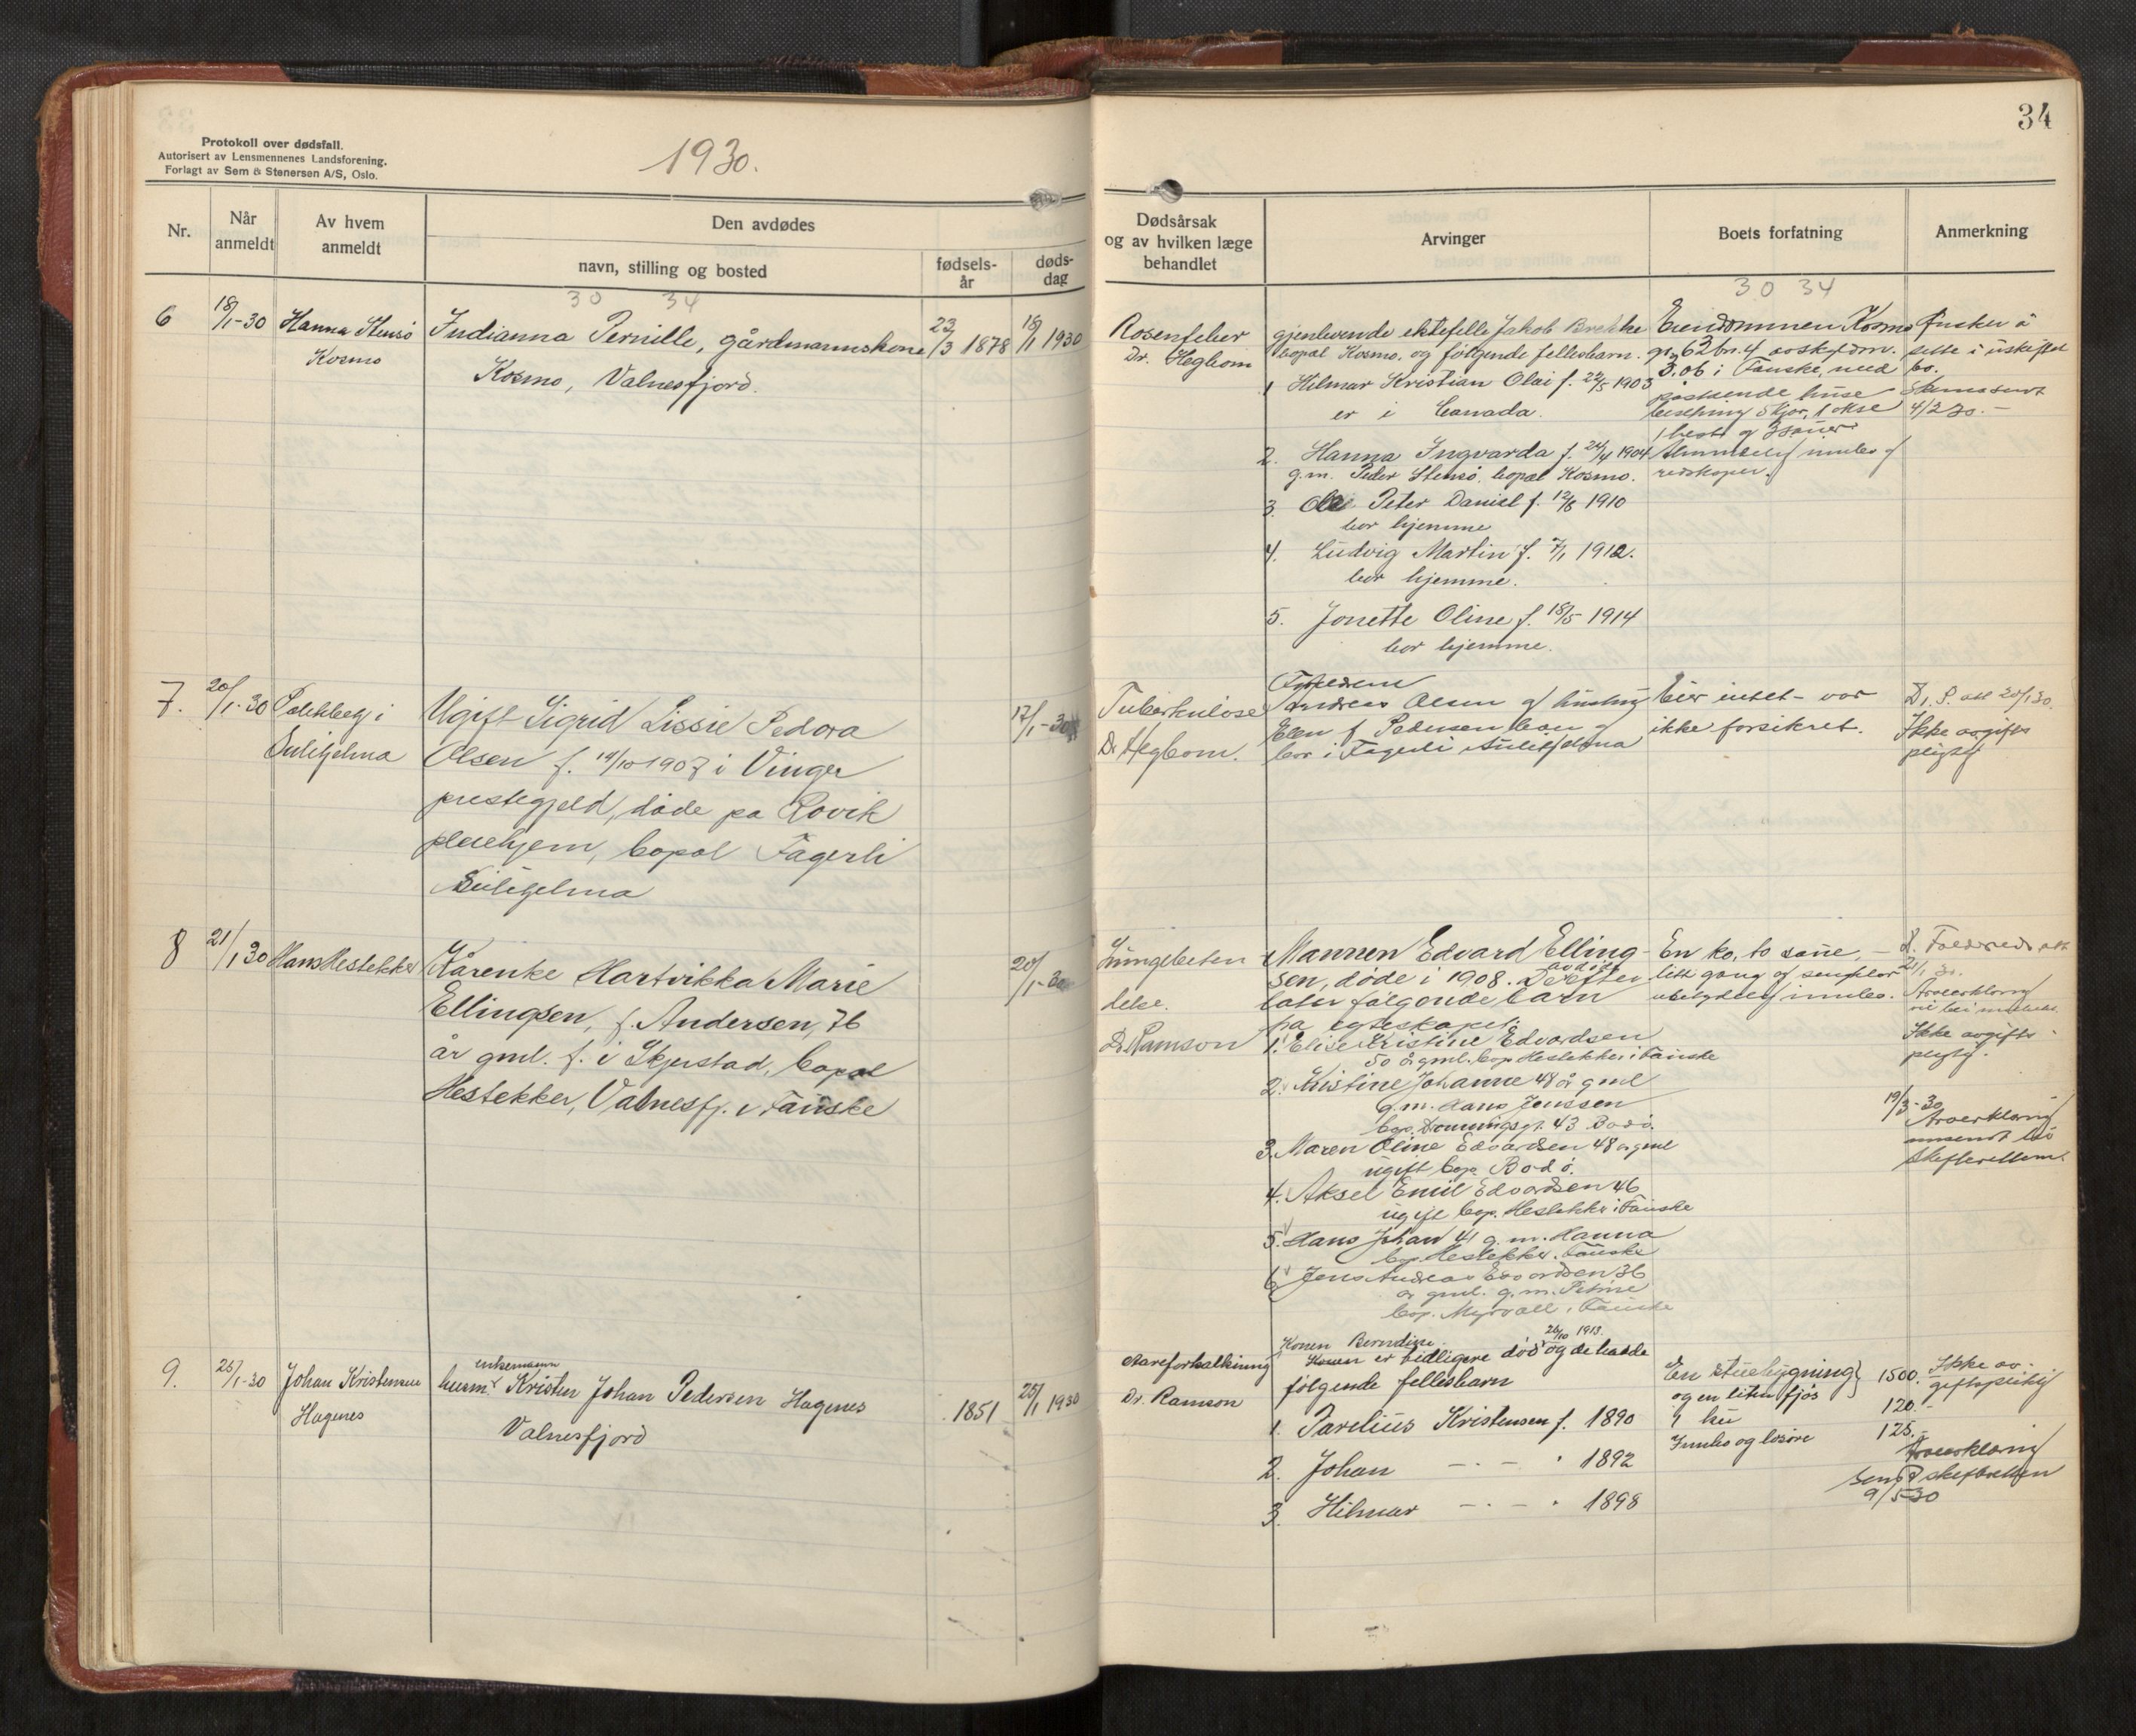 34
Protokoll over dødsfall.
Autorisert av Lensmennenes Landsforening.
Forlagt av Sem & Stenersen A/S, Oslo.
1930.
Nr.
Når anmeldt
Av hvem anmeldt
Den avdødes
navn, stilling og bosted
fødsels-år
døds-dag
Dødsårsak og av hvilken læge behandlet
Arvinger
Boets forfatning
Anmerkning
30 34
30 34
6
18/1-30
Hanna Stensø
Kosmo
Indianna Pernille, gårdmannskone
Kosmo, Valnesfjord.
23/3 1878
18/1 1930
Rosenfeber
Dr. Hegbom
gjenlevende ektefelle Jakob Brekke
bopæl Kosmo, og følgende fellesbarn.
1 Hilmar Kristian Olai f. 22/5 1903
er i Canada.
2. Hanna Ingvarda f. 24/4 1904
g.m. Peder Stensø, bopæl Kosmo.
3. Ole Peter Daniel f. 12/8 1910
bor hjemme
4. Ludvig Martin f. 7/1 1912.
bor hjemme.
5. Jonette Oline f. 18/5 1914
bor hjemme.
Eiendommen Kosmo
gr. 62 bn. 4 av skyldm.
3.06 i Fauske, med
påstående huse
besetning 5 kjør, 1 okse
1 hest og 3 sauer
Almindelig innbo og
redskaper.
Ønsker å
sitte i uskiftet
bo.
4/2 30. -
7.
20/1-30
Sulitjelma
Ugift Sigrid Lissie Pedora
Olsen f. 14/10 1907 i Vinger
prestegjeld, døde pa Rovik
pleiehjem, bopæl Fagerli
Sulitjelma
17/1-30
Tuberkulose
Dr Hegbom.
Foreldrene
Andreas Olsen og hustru
Ellen f. Pedersen
bor i Fagerli Sulitjelma
Eier intet - var
ikke forsikret.
20/1 30.
Ikke avgifts
pligtig
8
21/1 30
Hans Hestekker
Kårenke Hartvikka Marie
Ellingsen, f. Andersen, 76
år gml. f. i Skjerstad, bopæl
Hestekker, Valnesfj. i Fauske
20/1-30
Lungebeten
delse.
Dr Ramson
Mannen Edvard Elling-
sen, døde i 1908. Avdøde efter
later følgende barn
fra egteskapet:
1. Elise Kristine Edvardsen
50 år gml. bop. Hestekker i Fauske
2. Kristine Johanne 48 år gml
g.m. Hans Jenssen
bop. Dronningsgt. 43 Bodø.
3. Maren Oline Edvardsen 48 år gml
ugift bop. Bodø.
4. Aksel Emil Edvardsen 46
ugift bop. Hestekker i Fauske
5. Hans Johan 41 g.m. Hanna
bop. Hestekker, Fauske
6. Jens Andreas Edvardsen 36
år gml. g.m. Petrine
bop. Myrvall, Fauske
En ko, to saue,
litt gang og sengklær
ubetydelig innbo.
21/1 30.
Arverklæring
Ikke avgifts
pligtig.
19/3-30
Arverklæring
innsendt til
skifteretten.
9.
25/1-30
Johan Kristensen
Hagenes
enkemann
husm. Kristen Johan Pedersen Hagenes
Valnesfjord
1851
25/1 1930
Aareforkalkning
Dr. Ramson
Konen Berndine
26/10 1913.
Konen er tidligere død og de hadde
følgende fellesbarn
1. Parelius Kristensen f. 1890
2. Johan - . - " 1892
3. Hilmar - . - " 1898
En stuebygning
og en liten fjøs } 1500.
1 ku 120.-
Innbo og løsøre 125.-
Ikke av-
giftspliktig
Arverklæring
sendt skifteretten
9/5 30